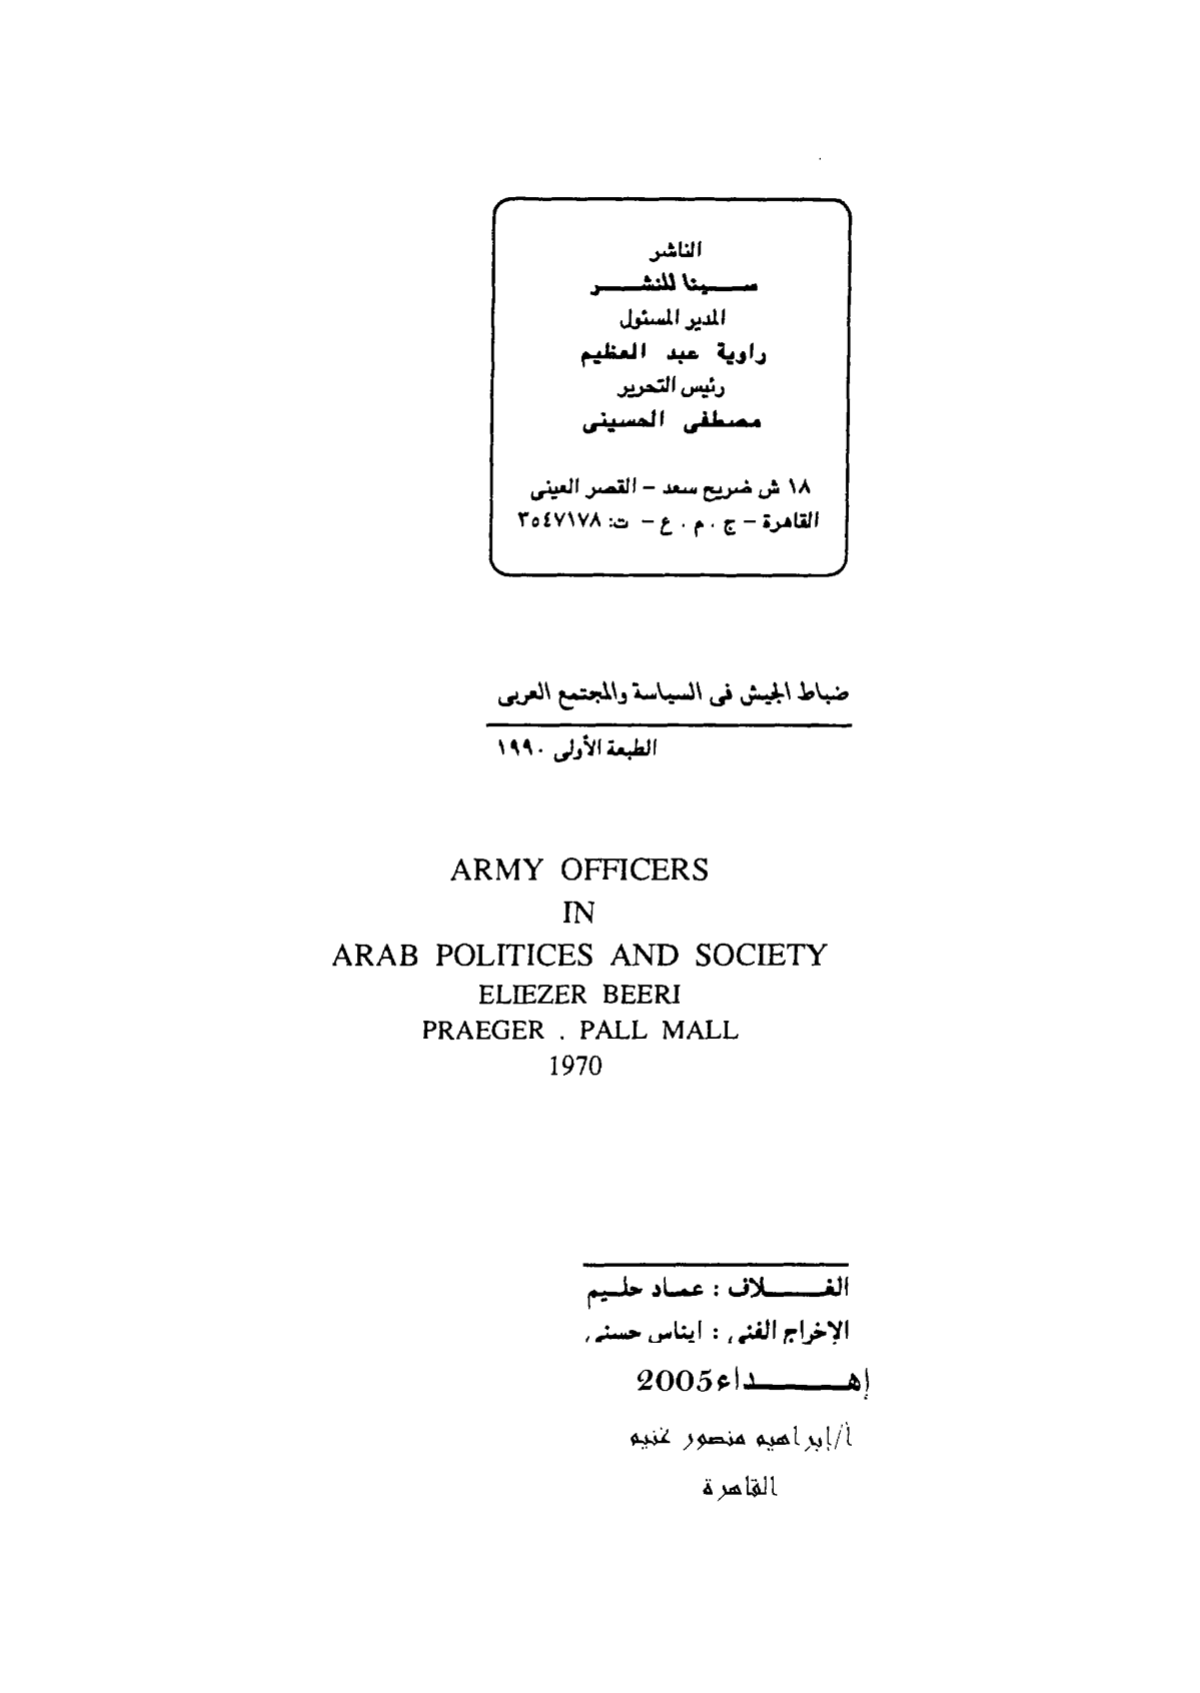 الناشر
سينا للنشر
المدير المسئول
راوية عبد العظيم
رئيس التحرير
مصطفى الحسينى
١٨ ش ضريح سعد – القصر العينى
القاهرة – ج . م . ع – ت: ٣٥٤٧١٧٨
ضباط الجيش فى السياسة والمجتمع العربى
الطبعة الأولى ١٩٩٠
ARMY OFFICERS
IN
ARAB POLITICES AND SOCIETY
ELIEZER BEERI
PRAEGER . PALL MALL
1970
الغلاف : عماد حليم
الإخراج الفنى : ايناس حسنى
إهداء 2005
أ/إبراهيم منصور غنيم
القاهرة